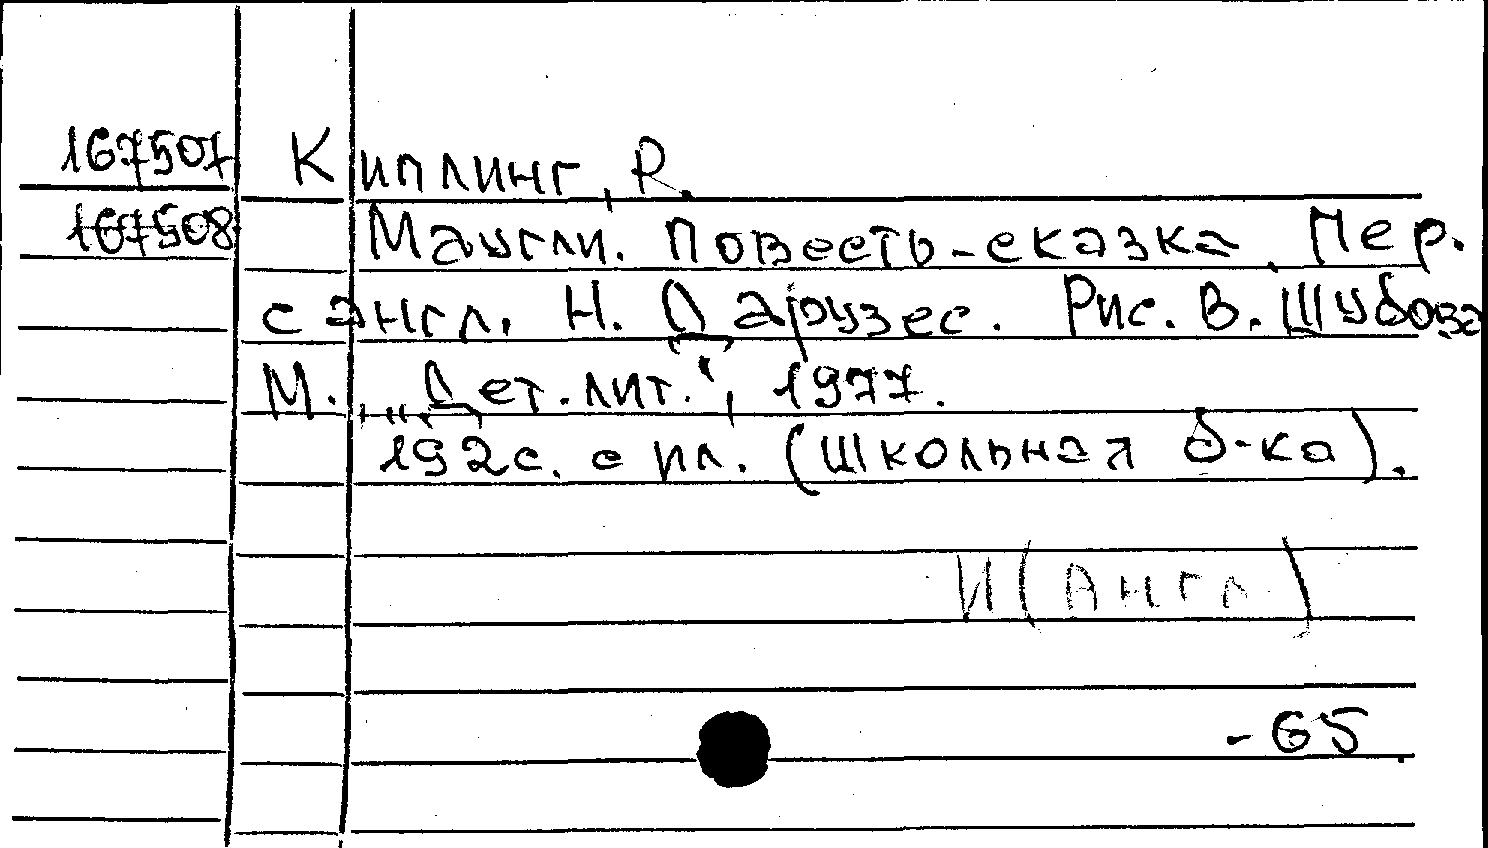 167507 Киплинг, Р.
167508 Маугли. Повесть-сказка. Пер.
с англ. Н. Дарузес. Рис. В. Шубова
М., "Дет. лит.", 1977.
192с. с ил. (Школьная б-ка).
И(Англ)
-65